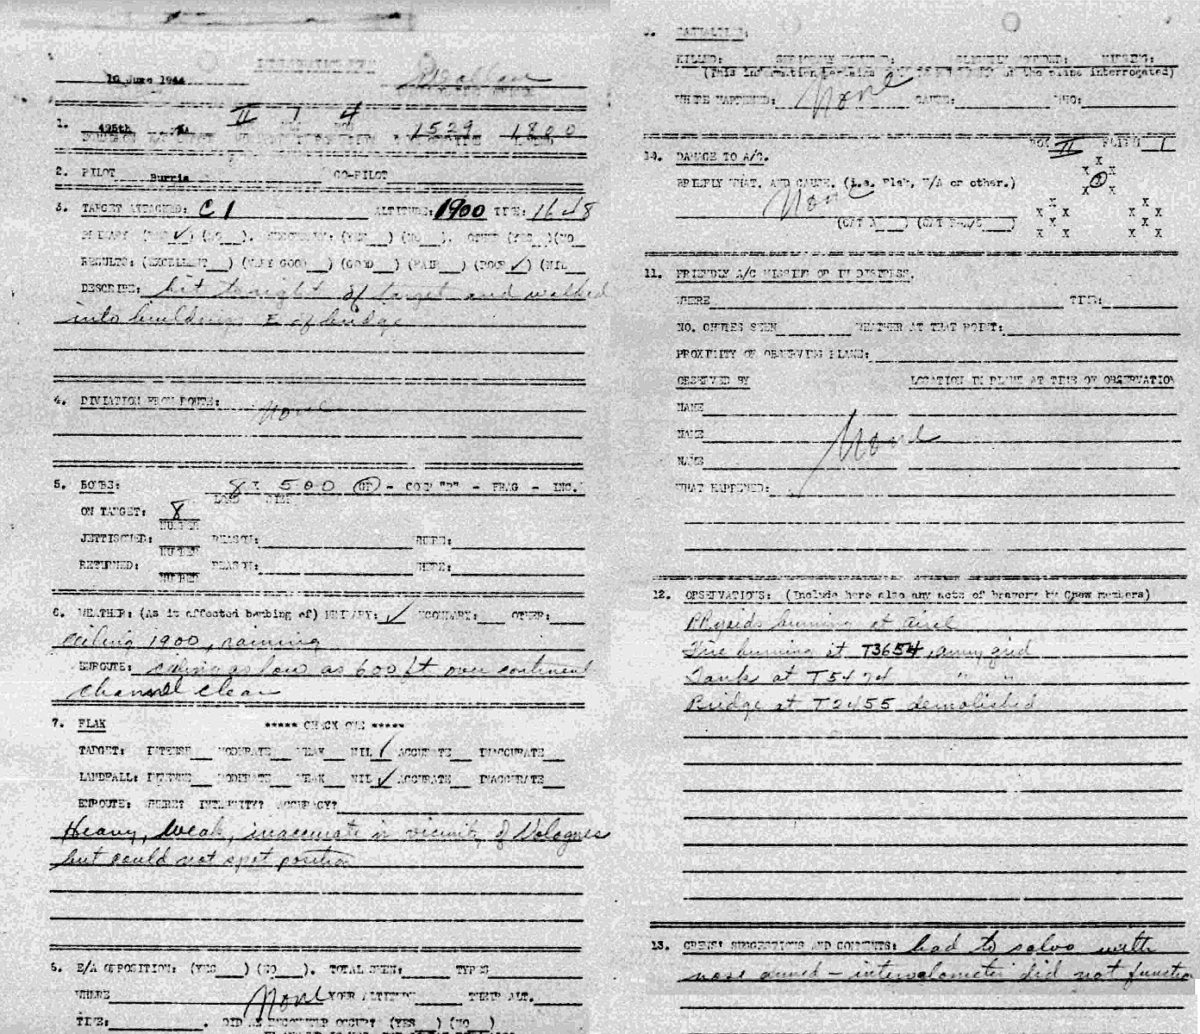 10 June 1944
II 1 4
1. 495th 1529 1800
2. PILOT Burris CO-PILOT
3. TARGET ATTACKED: C 1 ALTITUDE: 1900 TIME: 1648
PRIMARY (YES ✓) (NO ). SECONDARY: (YES ) (NO ). OTHER (YES )(NO
RESULTS: (EXCELLENT ) (VERY GOOD ) (GOOD ) (FAIR ) (POOR ✓) (NIL
DESCRIBE: hit to right of target and walked
into buildings E of bridge
4. DIVIATION FROM ROUTE: None
5. BOMBS: 8 X 500 GP - COMP "B" - FRAG - INC.
ON TARGET: 8
NUMBER
JETTISONED: REASON: WHERE:
NUMBER
RETURNED: REASON: WHERE:
NUMBER
6. WEATHER: (As it affected bombing of) PRIMARY: ✓ SECONDARY: OTHER:
ceiling 1900, raining
ENROUTE: ceiling as low as 600 ft over continent
channel clear
7. FLAK ***** CHECK ONE *****
TARGET: INTENSE MODERATE WEAK NIL ✓ ACCURATE INACCURATE
LANDFALL: INTENSE MODERATE WEAK NIL ✓ ACCURATE INACCURATE
ENROUTE: WHERE? INTENSITY? ACCURACY?
Heavy, Weak, inaccurate in vicinity of Valognes
but could not spot position
E/A OPPOSITION: (YES ) (NO ). TOTAL SEEN: TYPES
WHERE None YOUR ALTITUDE THEIR ALT.
TIME: . DID AN ENCOUNTER OCCUR? (YES ) (NO )
9. CASUALTIES:
KILLED: SERIOUSLY WOUNDED: SLIGHTLY WOUNDED: MISSING:
WHERE HAPPENED: None CAUSE: WHO:
BOX II FLIGHT 1
10. DAMAGE TO A/C.
BRIEFLY WHAT, AND CAUSE. (i.e. Flak, E/A or other.)
None
11. FRIENDLY A/C MISSING OR IN DISTRESS.
WHERE TIME:
NO. CHUTES SEEN WEATHER AT THAT POINT:
PROXIMITY OF OBSERVING PLANE:
OBSERVED BY LOCATION IN PLANE AT TIME OF OBSERVATION
NAME
NAME None
NAME
WHAT HAPPENED:
12. OBSERVATIONS: (Include here also any acts of bravery by Crew members)
burning at
Fire burning at T3654 army grid
Tanks at T5474 " "
Bridge at T2455 demolished
13. CREWS' SUGGESTIONS AND COMMENTS: had to salvo with
nose armed - intervalometer did not function